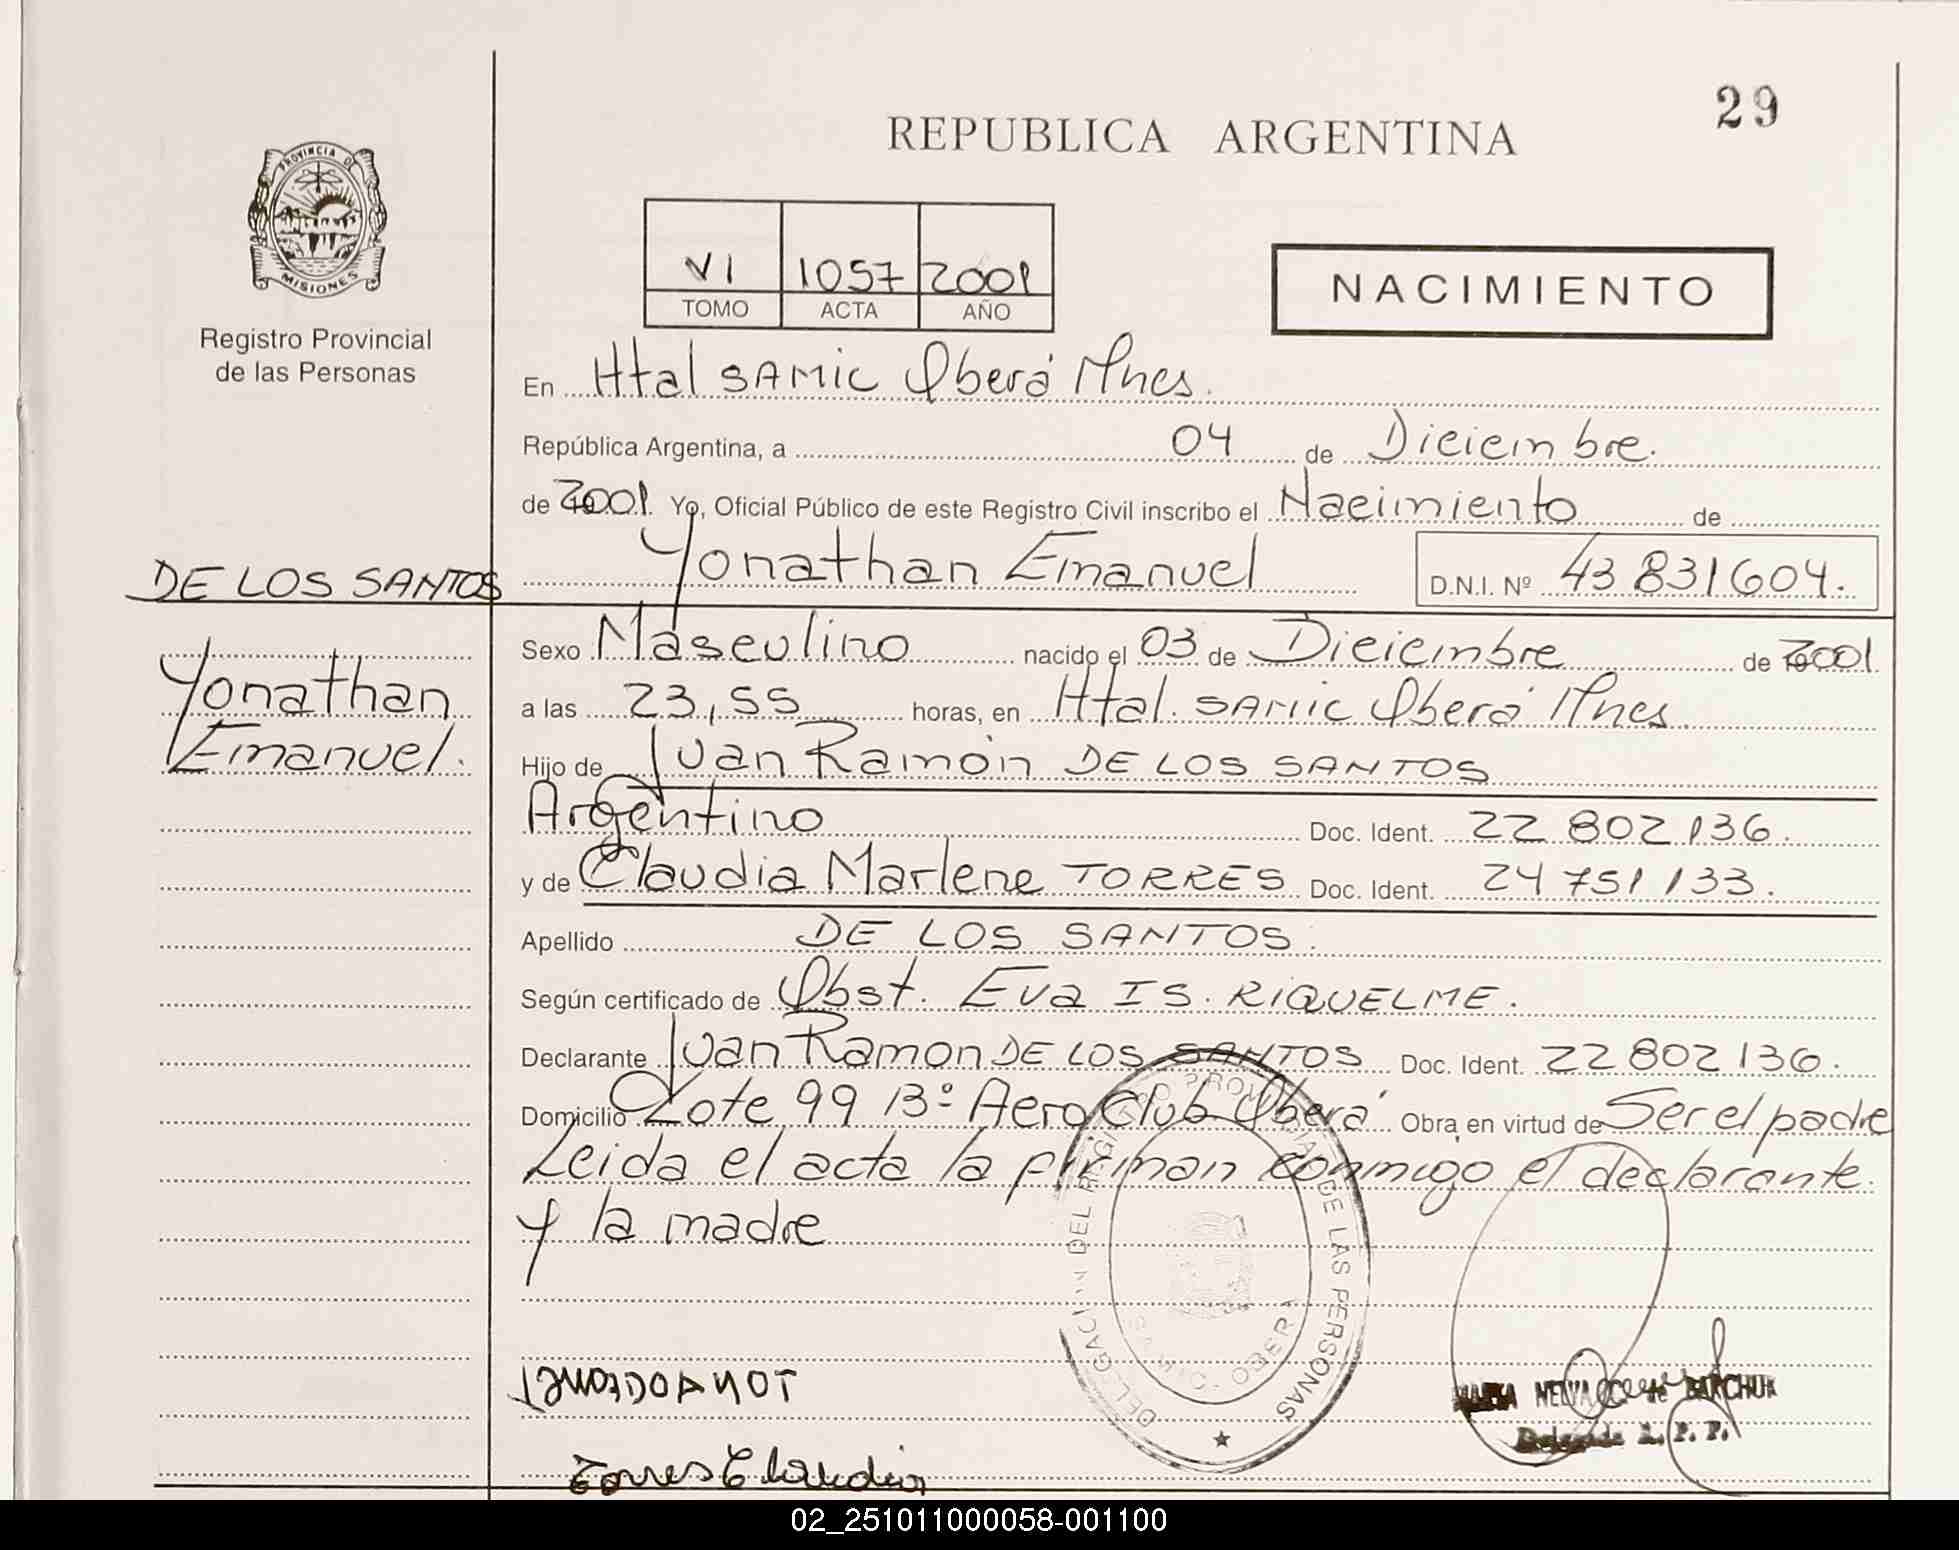 29
REPUBLICA ARGENTINA
PROVINCIA DE
MISIONES
Registro Provincial
de las Personas
VI 1057 2001
TOMO ACTA AÑO
NACIMIENTO
En Htal SAMIC Oberá Mnes.
República Argentina, a 04 de Diciembre.
de 2001. Yo, Oficial Público de este Registro Civil inscribo el Nacimiento de
DE LOS SANTOS
Yonathan Emanuel D.N.I. Nº 43 831604.
Yonathan
Emanuel.
Sexo Masculino nacido el 03 de Diciembre de 2001
a las 23,55 horas, en Htal. SAMIC Oberá Mnes.
Hijo de Juan Ramón DE LOS SANTOS
Argentino Doc. Ident. 22 802 136.
y de Claudia Marlene TORRES Doc. Ident. 24 751 133.
Apellido DE LOS SANTOS.
Según certificado de Obst. Eva IS. RIQUELME.
Declarante Juan Ramon DE LOS SANTOS Doc. Ident. 22 802 136.
Domicilio Lote 99 Bº Aero Club Oberá Obra en virtud de Ser el padre
Leida el acta la firman conmigo el declarante
y la madre
REGISTRO PROVINCIAL DE LAS PERSONAS
OBERA
Torres Claudia
NELVA de BARCHUK
Delegada R. P. P.
02_251011000058-001100